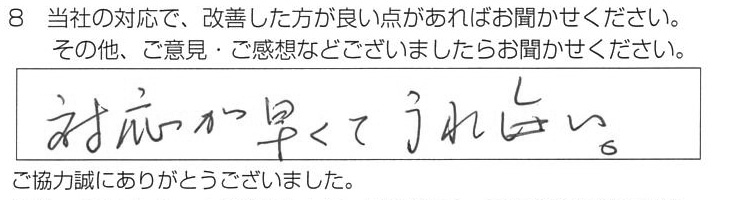 8 当社の対応で、改善した方が良い点があればお聞かせください。
その他、ご意見・ご感想などございましたらお聞かせください。
対応が早くてうれしい。
ご協力誠にありがとうございました。